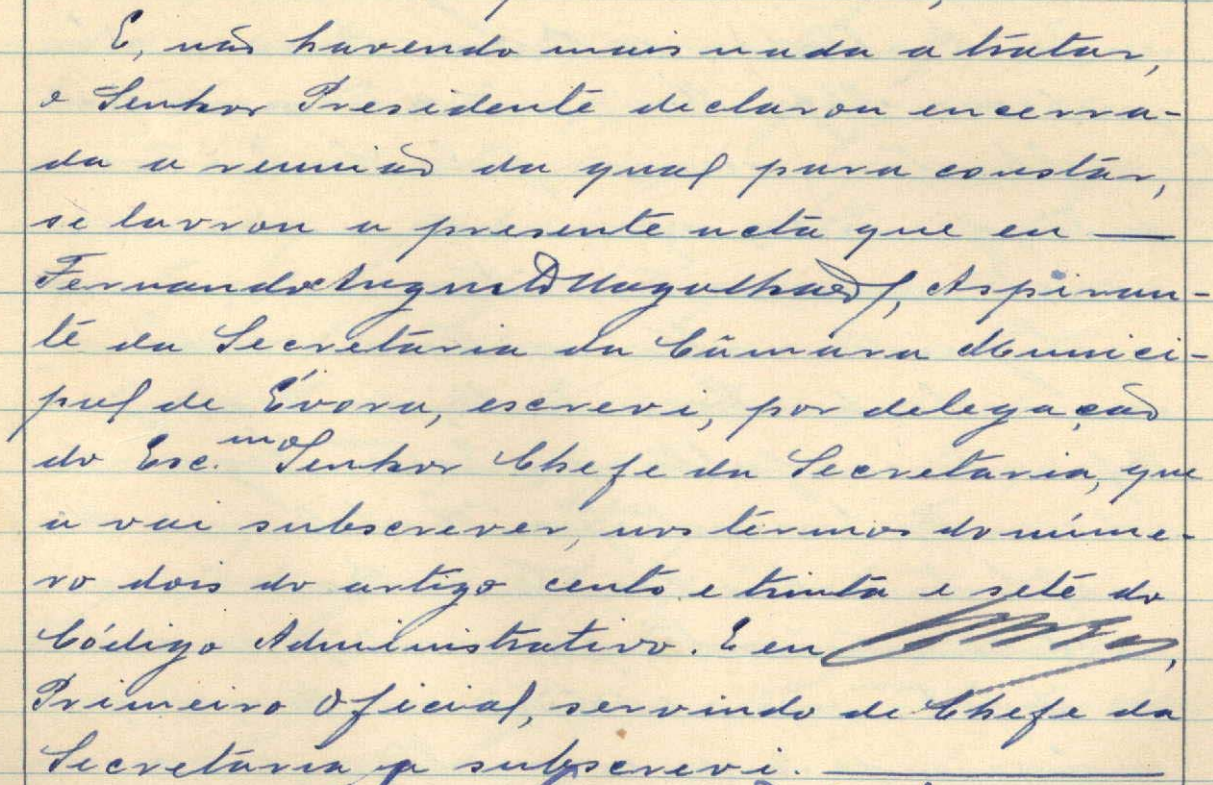 E, não havendo mais nada a tratar,
o Senhor Presidente declarou encerra-
da a reunião da qual para constar,
se lavrou a presente acta que eu —
Fernando Augusto Magalhães, Aspiran-
te da Secretaria da Câmara Munici-
pal de Évora, escrevi, por delegação
do Exc.mo Senhor Chefe da Secretaria, que
a vai subscrever, nos têrmos do núme-
ro dois do artigo cento e trinta e sete do
Código Administrativo. E eu ,
Primeiro Oficial, servindo de Chefe da
Secretaria a subscrevi. —